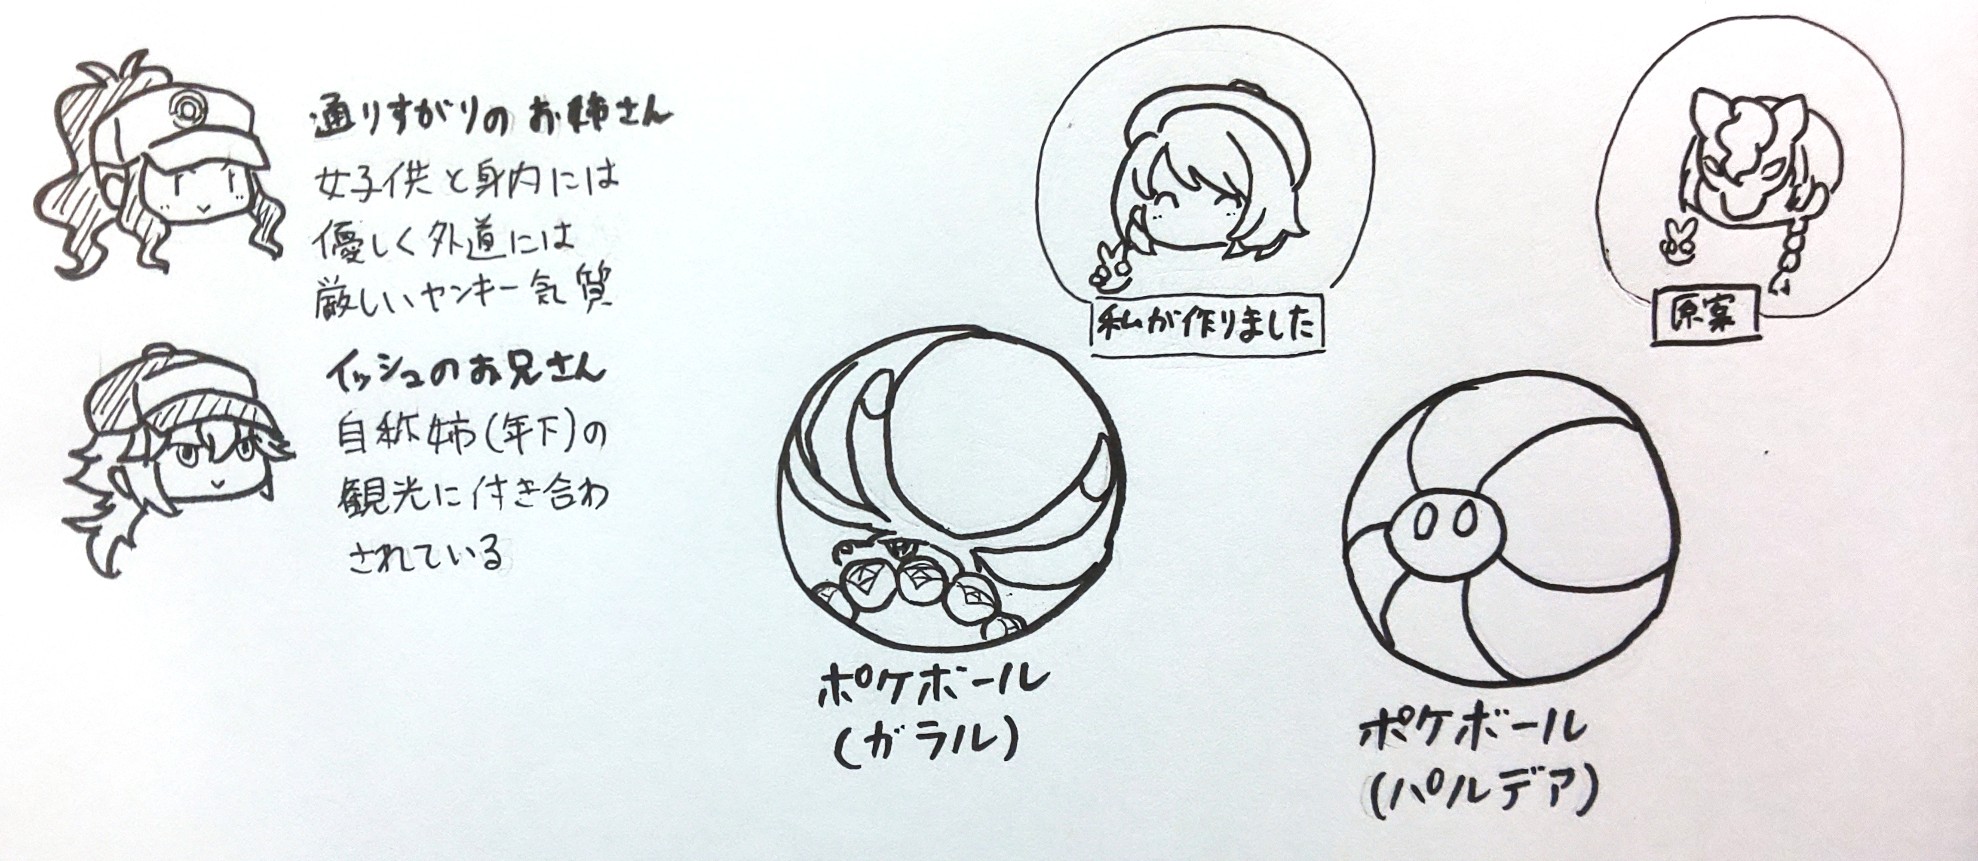 通りすがりのお姉さん
女子供と身内には
優しく外道には
厳しいヤンキー気質
イッシュのお兄さん
自称姉(年下)の
観光に付き合わ
されている
私が作りました
原案
ポケボール
(ガラル)
ポケボール
(パルデア)